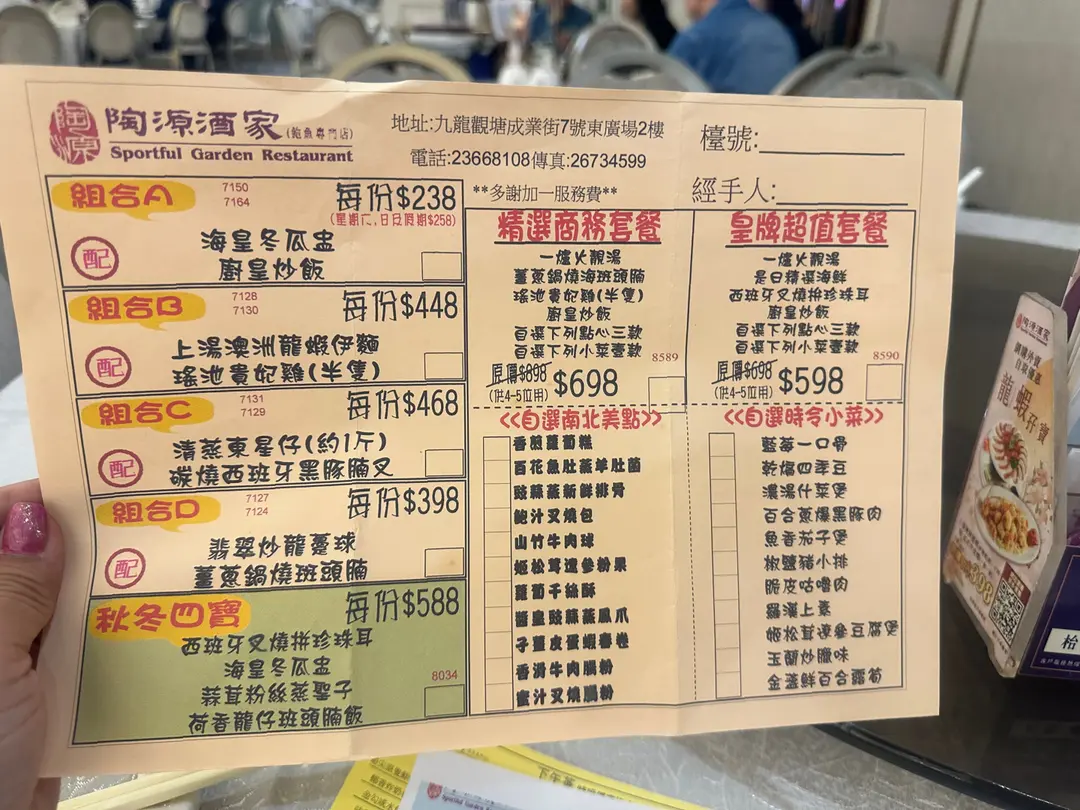 陶源
陶源酒家(鮑魚專門店)
Sportful Garden Restaurant
地址:九龍觀塘成業街7號東廣場2樓
電話:23668108傳真:26734599
**多謝加一服務費**
檯號:
經手人:
組合A
7150
7164
每份$238
(星期六,日及假期$258)
配
海皇冬瓜盅
廚皇炒飯
組合B
7128
7130
每份$448
配
上湯澳洲龍蝦伊麵
瑤池貴妃雞(半隻)
組合C
7131
7129
每份$468
配
清蒸東星仔(約1斤)
碳燒西班牙黑豚腩叉
組合D
7127
7124
每份$398
配
翡翠炒龍躉球
薑蔥鍋燒斑頭腩
秋冬四寶
每份$588
西班牙叉燒拼珍珠耳
海皇冬瓜盅
蒜茸粉絲蒸聖子
荷香龍仔班頭腩飯
8034
精選商務套餐
一爐火靚湯
薑蔥鍋燒海斑頭腩
瑤池貴妃雞(半隻)
廚皇炒飯
自選下列點心三款
自選下列小菜壹款
8589
原價$898
(供4-5位用)
$698
<<自選南北美點>>
香煎蘿蔔糕
百花魚肚蒸羊肚菌
豉蒜蒸新鮮排骨
鮑汁叉燒包
山竹牛肉球
姬松茸遼參粉果
蘿蔔千絲酥
醬皇豉蒜蒸鳳爪
子薑皮蛋蝦春卷
香滑牛肉腸粉
蜜汁叉燒腸粉
皇牌超值套餐
一爐火靚湯
是日精選海鮮
西班牙叉燒拼珍珠耳
廚皇炒飯
自選下列點心三款
自選下列小菜壹款
8590
原價$698
(供4-5位用)
$598
<<自選時令小菜>>
藍莓一口骨
乾煸四季豆
濃湯什菜煲
百合蔥爆黑豚肉
魚香茄子煲
椒鹽豬小排
脆皮咕嚕肉
羅漢上素
姬松茸遼參豆腐煲
玉蘭炒臘味
金盞鮮百合露筍
陶源酒家
龍蝦仔寶